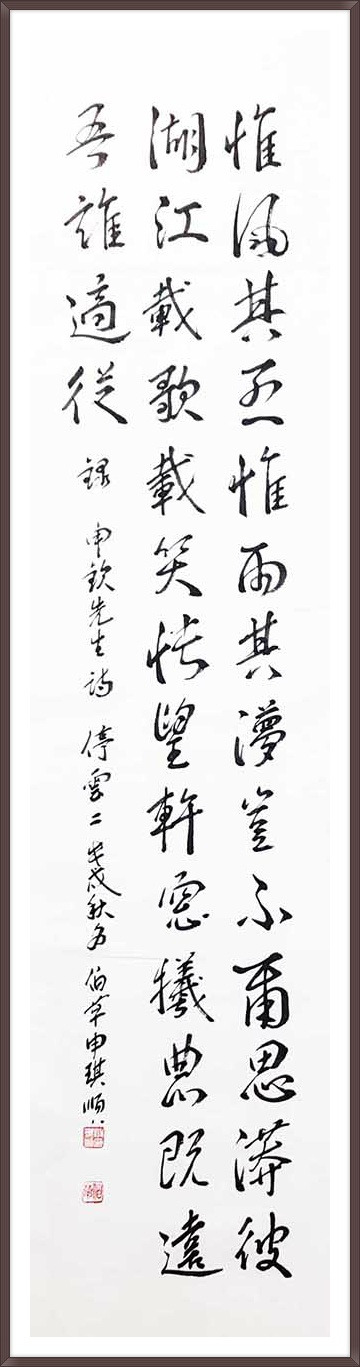 惟風其烈惟雨其濛豈不爾思漭彼
湖江載歌載笑悵望軒窓犧農既遠
吾誰適從 錄 申欽先生詩 停雲二 戊戌秋夕 伯草申琪順